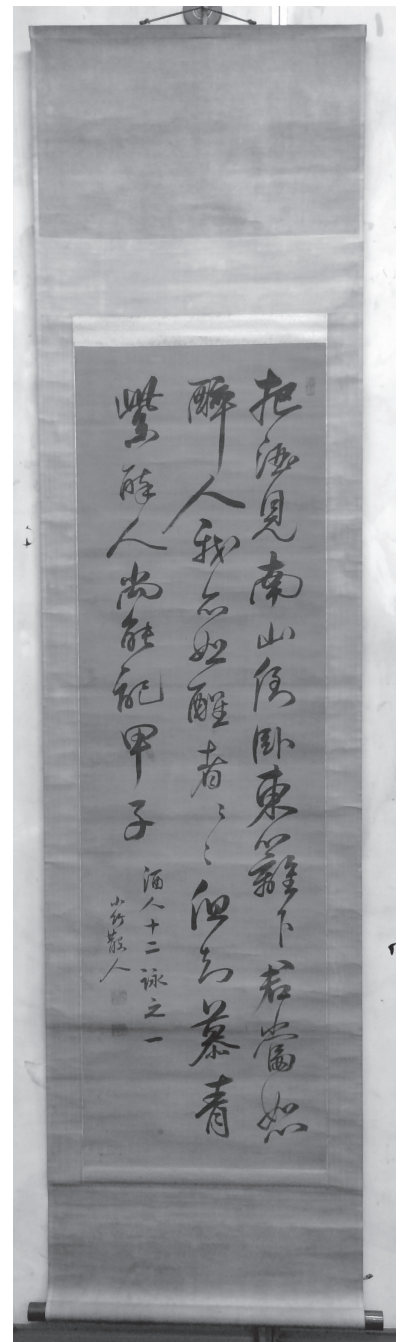 把酒見南山倒臥東籬下君當恕
醉人我亦恕醒者〻〻但知慕青
紫醉人尚能記甲子
酒人十二詠之一
小竹散人